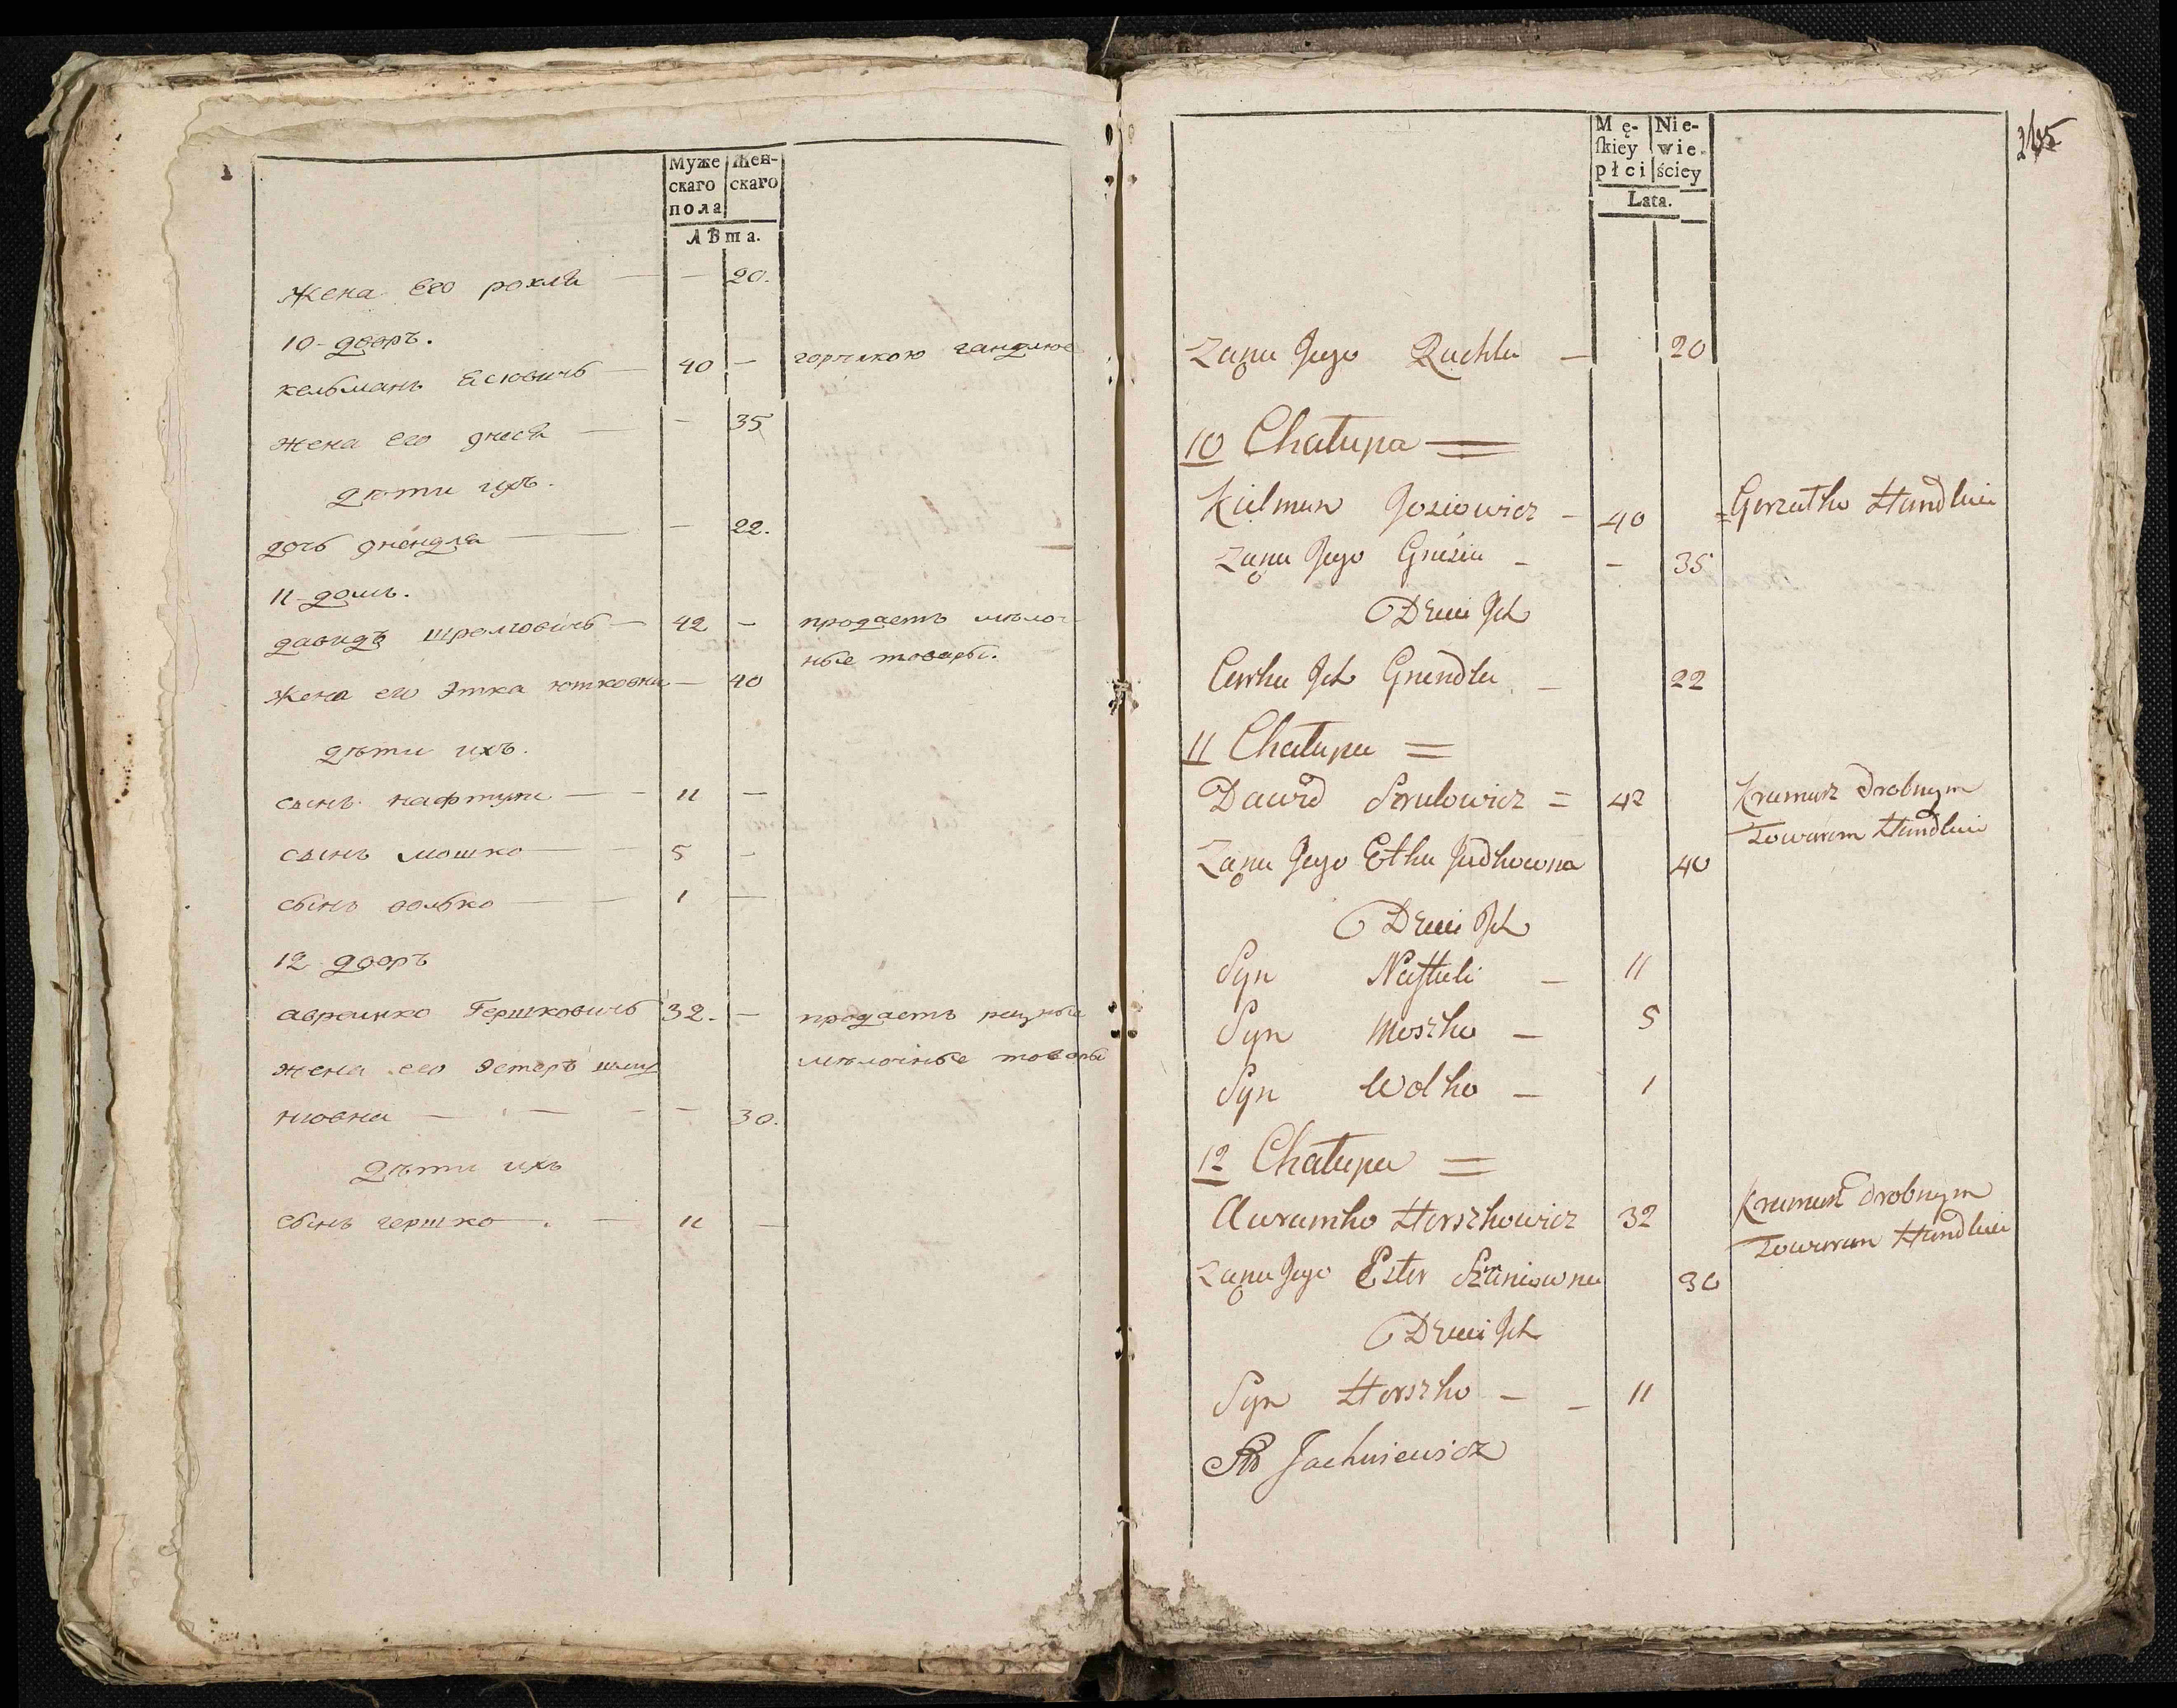 Муже Жен-
скаго скаго
пола
лѣта.
жена его рохля — — 20.
10 дворъ.
кельманъ Есювичъ — 40 — горѣлкою гандлюе
жена его гнеся — — 35
дѣти ихъ.
дочь гнендля — — 22.
11 домъ.
давидъ шролювичъ — 42 — продаетъ мѣлоч-
ные товары.
жена его Этка ютковна — 40
дѣти ихъ.
сынъ нафтули — — 11 —
сынъ мошко — — 5 —
сынъ волько — — 1 —
12 дворъ
аврамко Гершковичъ 32. — продаетъ разные
жена его Эстеръ мѣлочные товары
нювна — — — — 30.
дѣти ихъ
сынъ гершко — — 11 —
Mę- Nie-
skiey wie-
płci ściey
Lata.
215
Zona Jego Ruchla — 20
10 Chałupa =
Kielman Josiowicz — 40 = Gorzałko Handluie
Zona Jego Gniesia — — 35
Dzieci Ich
Corka Ich Gnendla — 22
11 Chałupa =
Dawid Srulowicz = 42 Kramarz drobnym
Towarem Handluie
Zona Jego Etka Judkowna 40
Dzieci Ich
Syn Naftuli — 11
Syn Moszko — 5
Syn Wolko — 1
12 Chałupa =
Auramko Herszkowicz 32 Kramarz drobnym
Towarem Handluie
Zona Jego Ester 30
Dzieci Ich
Syn Herszko — — 11
Jachniewicz